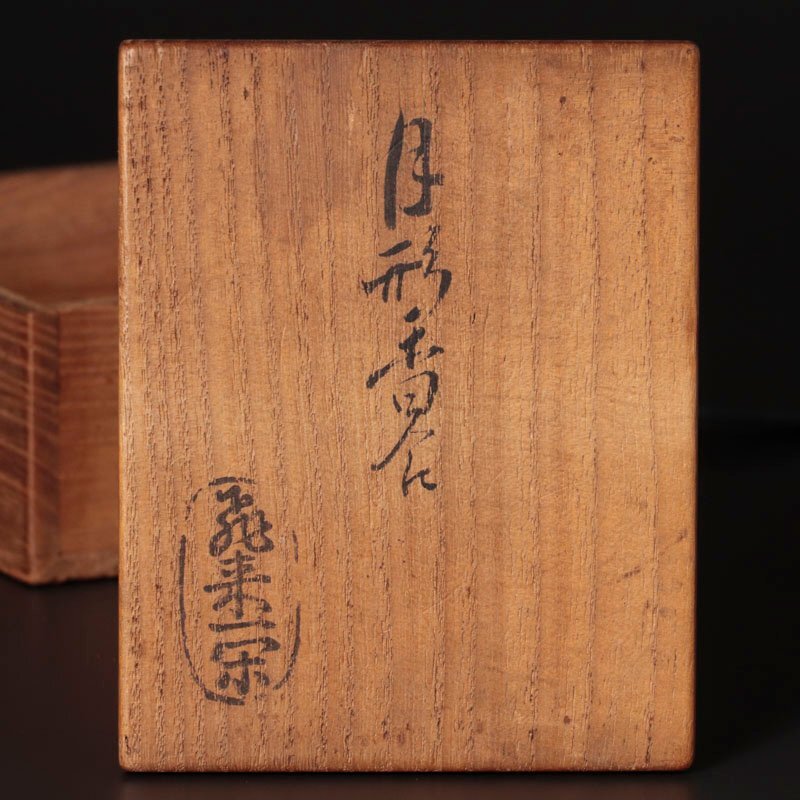 月形香合
飛来一閑